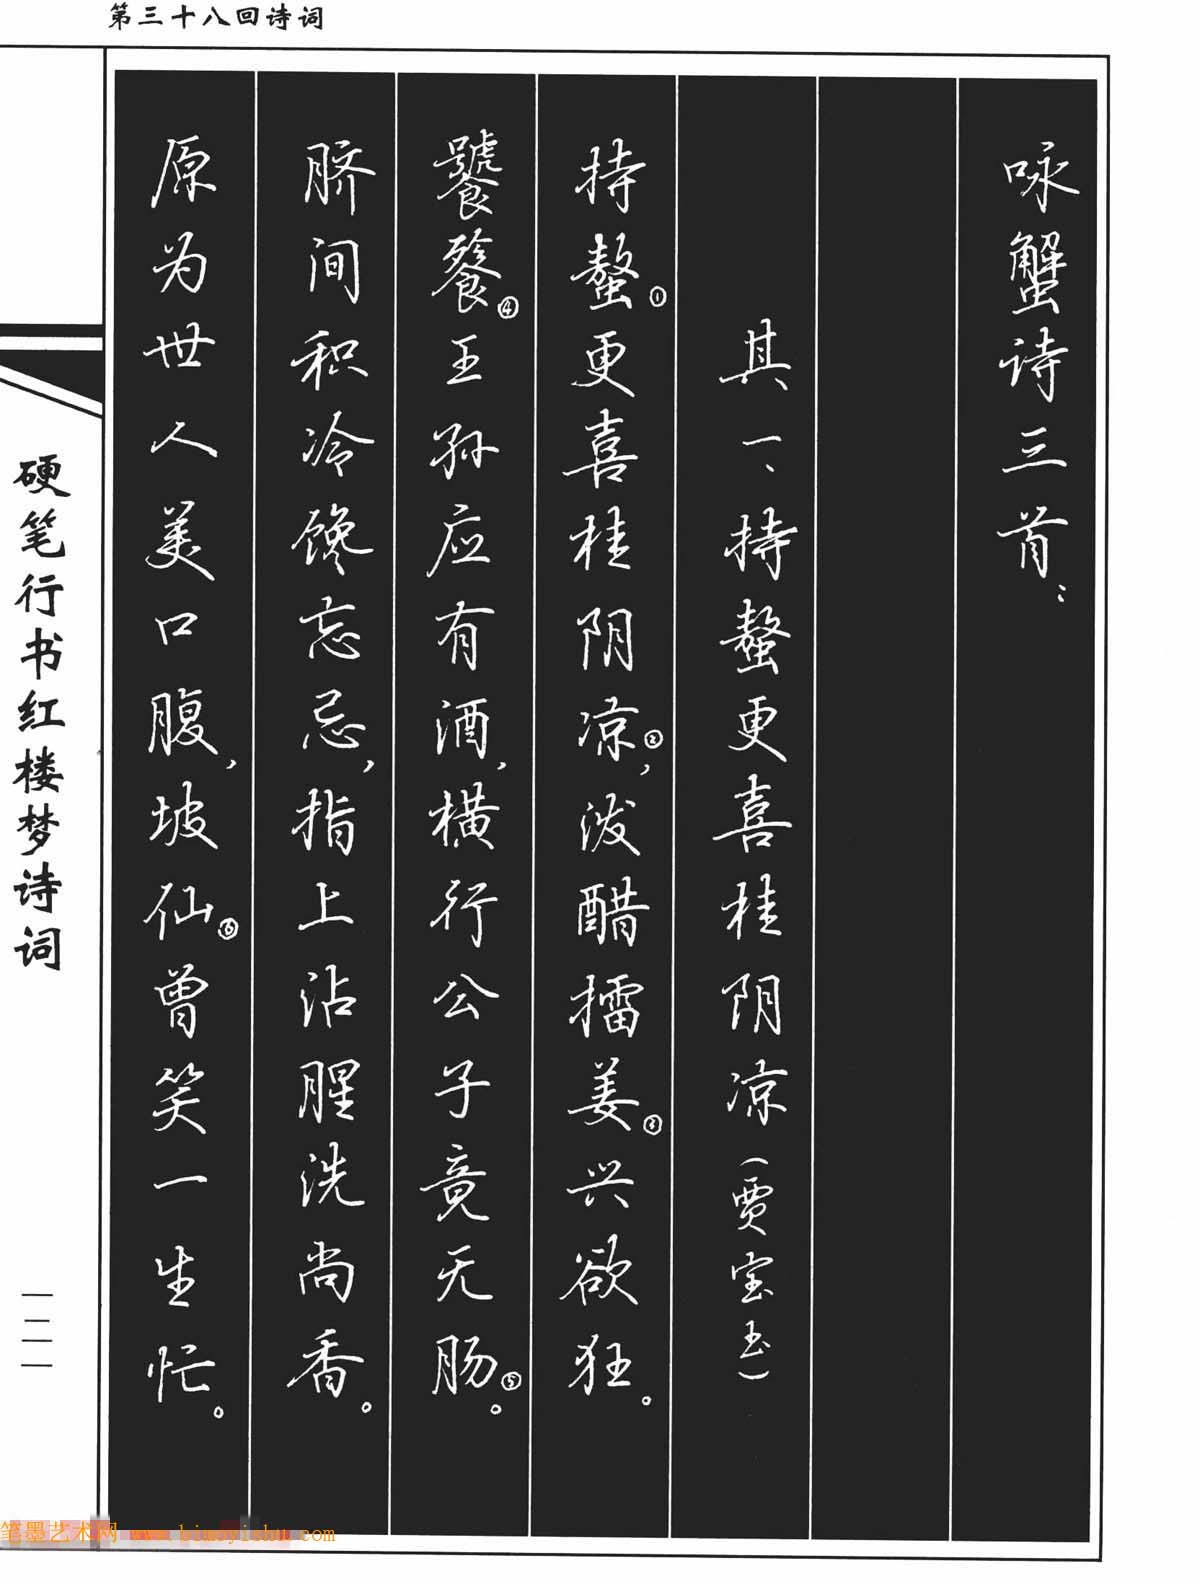 第三十八回诗词
咏蟹诗三首：
其一、持螯更喜桂阴凉（贾宝玉）
持螯①更喜桂阴凉②，泼醋擂姜③兴欲狂。
饕餮④王孙应有酒，横行公子竟无肠⑤。
脐间积冷馋忘忌，指上沾腥洗尚香。
原为世人美口腹，坡仙⑥曾笑一生忙。
硬笔行书红楼梦诗词
一二一
笔墨艺术网 www.bimoyishu.com